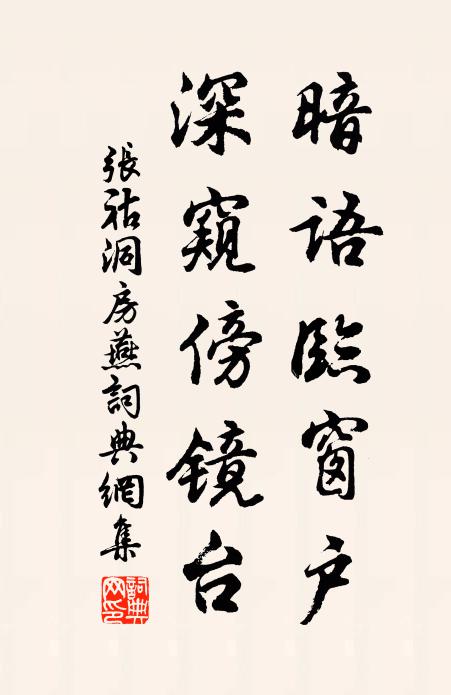 暗語臨窗户
深窺傍镜台
張祜洞房燕詞典網集
詞典网印